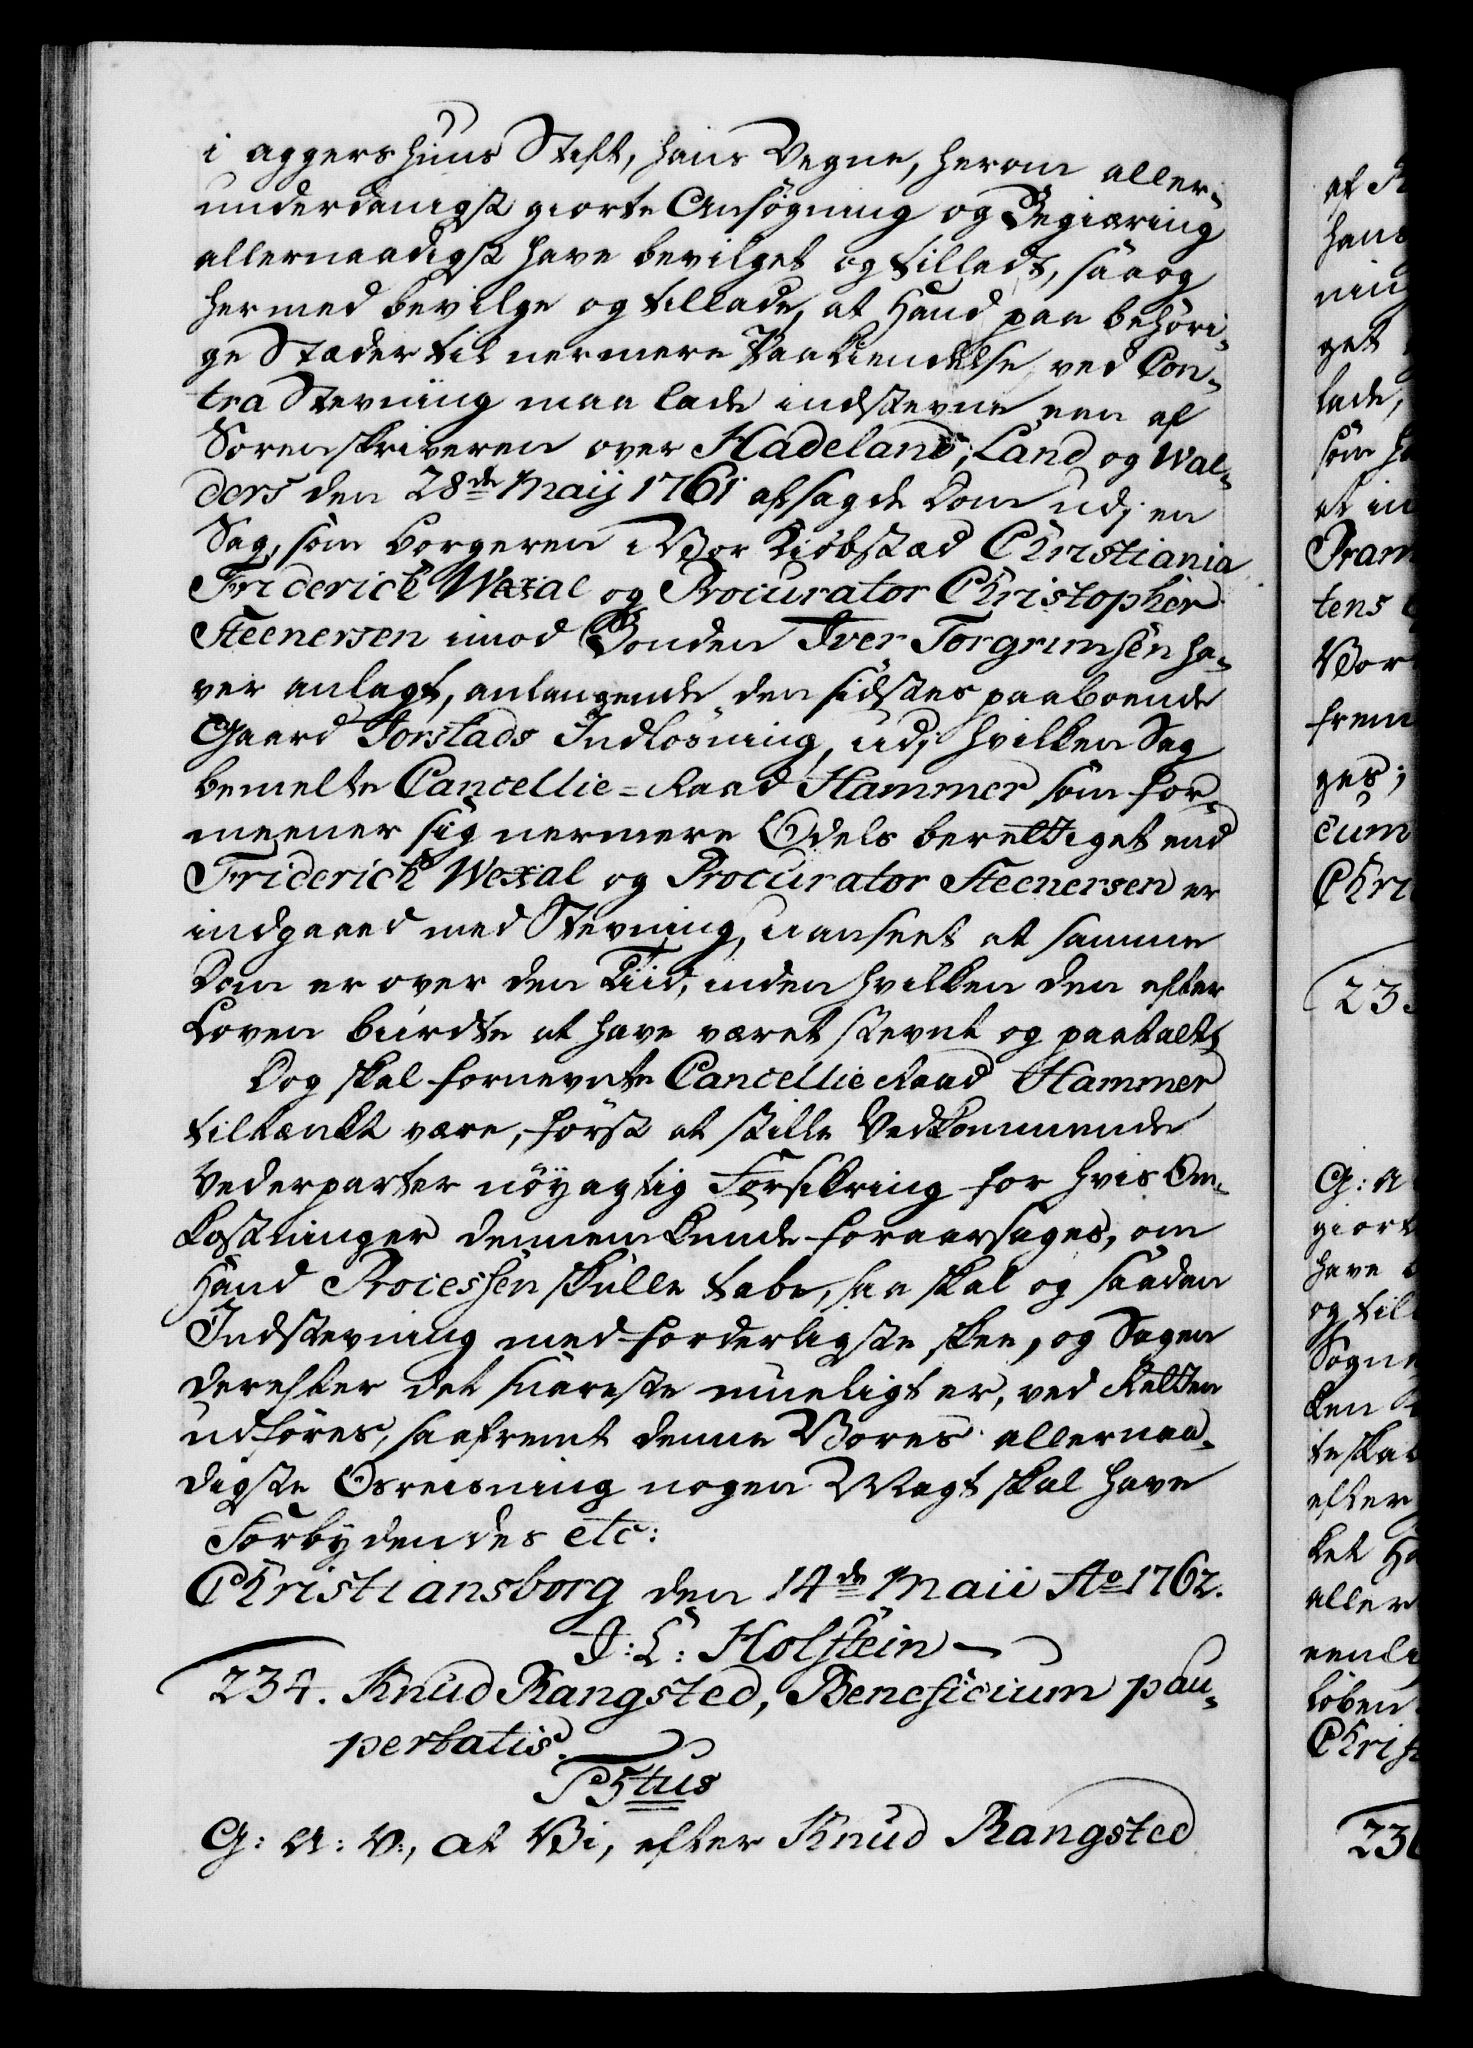 i Aggershuus Stift, hans Vegne, herom aller-
underdanigst giorte Ansögning og Begiæring
allernaadigst have bevilget og tilladt, saa og
hermed bevilge og tillade, at Hand paa behöri-
ge Stæder til nermere Paakiendelse ved Con-
tra Stevning maa lade indstevne een af
Sorenskriveren over Hadeland, Land og Wal-
ders den 28de Maij 1761 afsagde Dom udj en
Sag, som Borgeren i Vor Kiöbstæd Christiania
Friderich Wexal og Procurator Christopher
Steenersen imod Bonden Iver Torgrimsen ha-
ver anlagt, anlangende den sidstes paaboende
Gaard Jorstads Indlösning, udj hvilken Sag
bemelte Cancellie-Raad Hammer som for-
meener sig nermere Odels berettiget end
Friderich Wexal og Procurator Steenersen er
indgaaed med Stevning, uanseet at samme
Dom er over den Tiid, inden hvilken den efter
Loven burdte at have været stevnt og paatalt,
Dog skal fornevnte Cancellie Raad Hammer
tiltænkt være, först at stille Vedkommende
Vederparter nöyagtig Forsikring for hvis Om-
kostninger dennem kunde foraarsages, om
Hand Processen skulle tabe, saa skal og saadan
Indstevning med forderligste skee, og Sagen
derefter det snareste mueligt er, ved Retten
udföres, saafremt denne Vores allernaa-
digste Opreisning nogen Magt skal have
Forbydendes etc:
Christiansborg den 14de Maii Ao 1762.
J: L: Holstein
234. Knud Rangsted, Beneficium pau-
pertatis.
P5tus
G: A: V:, at Vi, efter Knud Rangsted